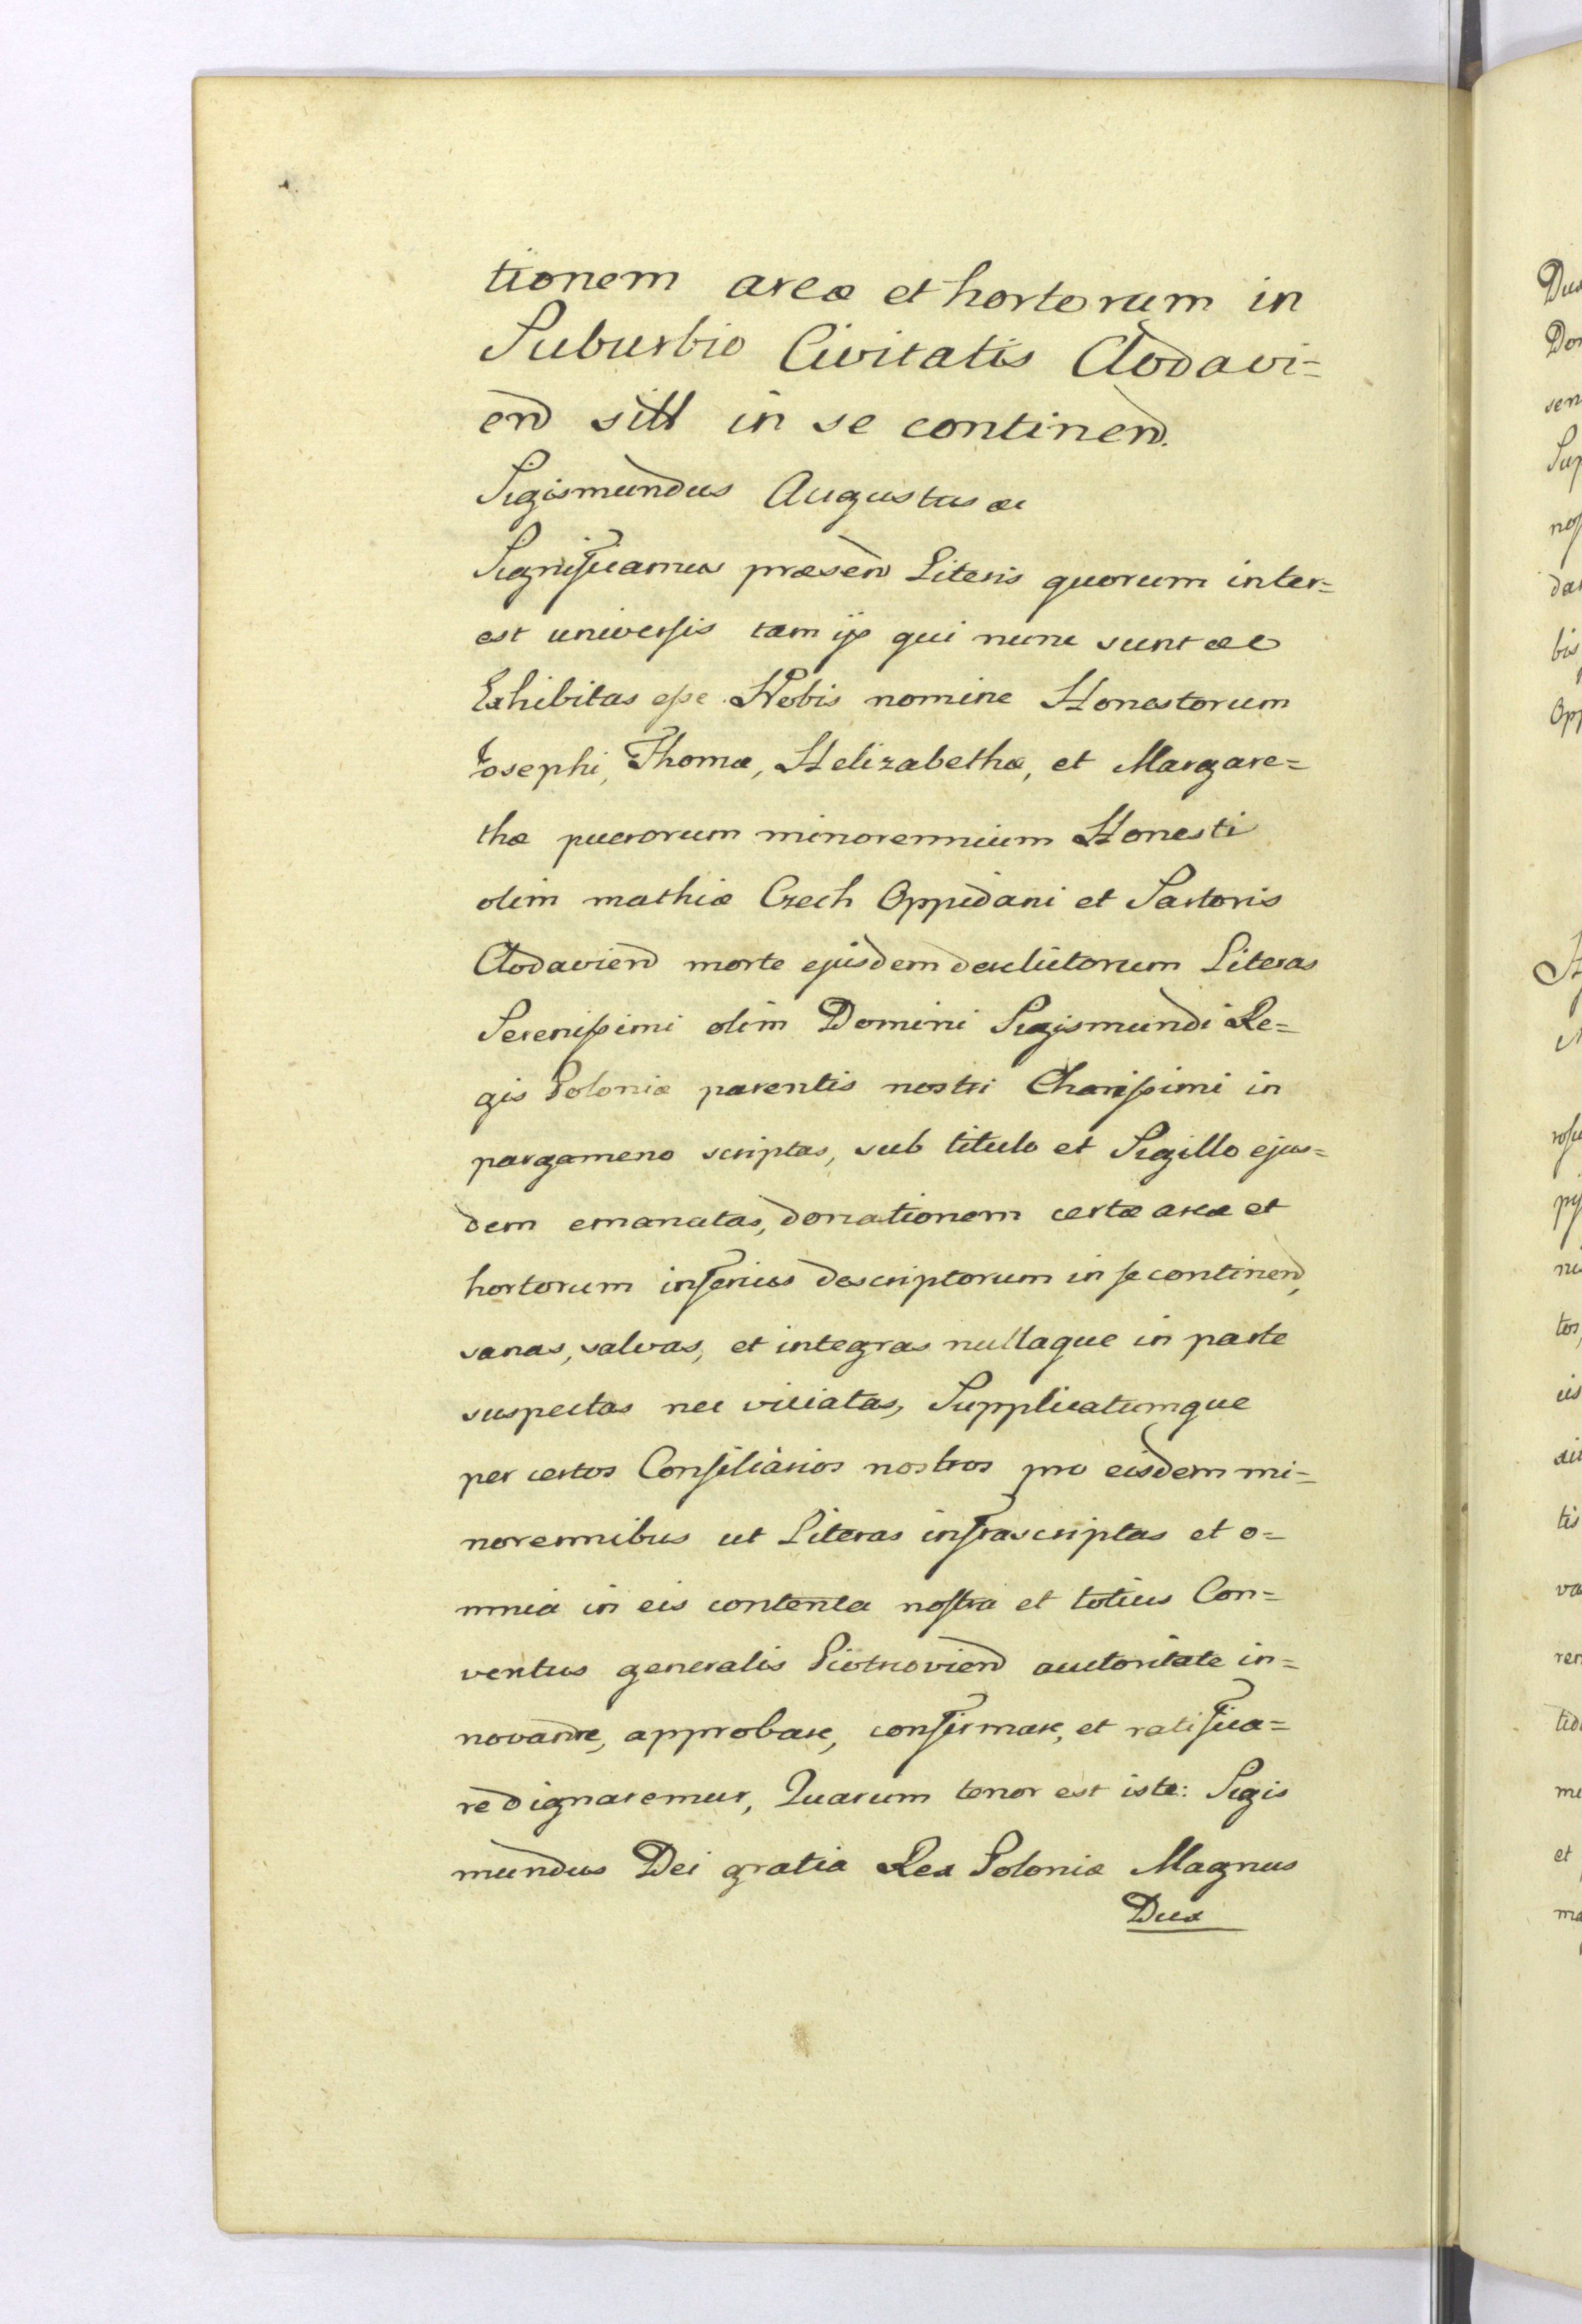 tionem areæ et hortorum in
Suburbio Civitatis Clodavi=
en sitt in se continen.
Sigismundus Augustus &c
Significamus præsen Literis quorum inter=
est universis tam ijs qui nunc sunt &c
Exhibitas esse Nobis nomine Honestorum
Josephi, Thomæ, Helizabethæ, et Margare=
thæ puerorum minorennium Honesti
olim mathiæ Czech Oppidani et Sartoris
Clodavien morte ejusdem derelictorum Literas
Serenissimi olim Domini Sigismundi Re=
gis Poloniæ parentis nostri Charissimi in
pargameno scriptas, sub titulo et Sigillo ejus=
dem emanatas, donationem certæ areæ et
hortorum inferius descriptorum in se continen,
sanas, salvas, et integras nullaque in parte
suspectas nec viciatas, Supplicatumque
per certos Consiliarios nostros pro eisdem mi=
norennibus ut Literas infrascriptas et o=
mnia in eis contenta nostra et totius Con=
ventus generalis Piotrcovien auctoritate in=
novare, approbare, confirmare, et ratifica=
re dignaremur, Quarum tenor est iste: Sigis
mundus Dei gratia Rex Poloniæ Magnus
Dux